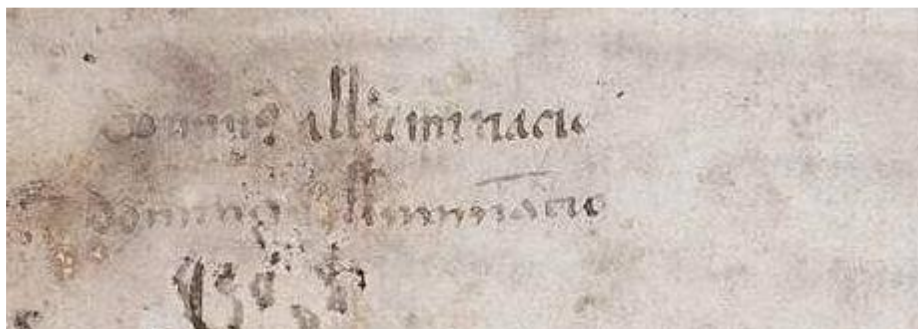 Dominus illuminacio
dominus illuminacio